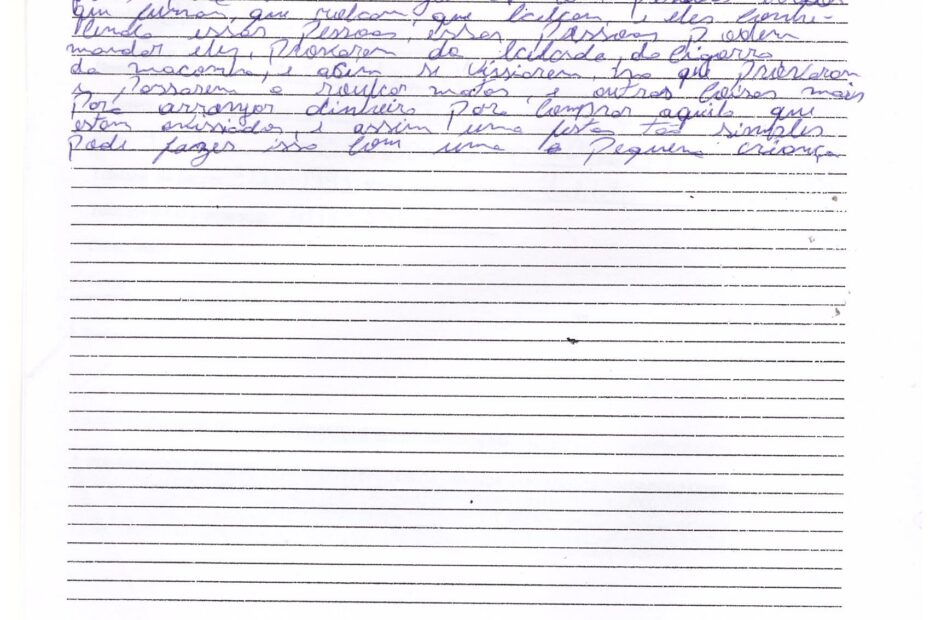 que fumão, que roubam, que bebem, e eles conhe-
cendo essas pessoas, essas pessoas podem
mandar eles, provarem da bebida, do cigarro
da maconha, e asim se vissiarem, no que provaram
e passarem a roubar matar e outras coisas mais
para arranjar dinheiro para comprar aquilo que
estam vissiados, e assim uma festa tão simples
pode fazer isso com uma pequena criança